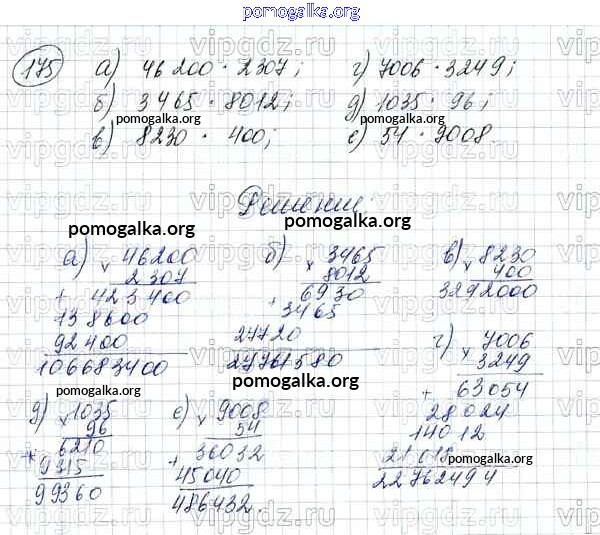 pomogalka.org
175 а) 46 200 · 2307; г) 7006 · 3249;
б) 3465 · 8012; д) 1035 · 96;
pomogalka.org pomogalka.org
в) 8230 · 400; е) 54 · 9008.
Решение:
pomogalka.org pomogalka.org
а) × 46200
2307
+ 423400
138600
92400
106683400
pomogalka.org
б) × 3465
8012
+ 6930
3465
27720
27761580
pomogalka.org
в) × 8230
400
3292000
г) × 7006
3249
+ 63054
28024
14012
21018
22762494
pomogalka.org
д) × 1035
96
+ 6210
9315
99360
pomogalka.org
е) × 9008
54
+ 36032
45040
486432.
pomogalka.org
vipgdz.ru